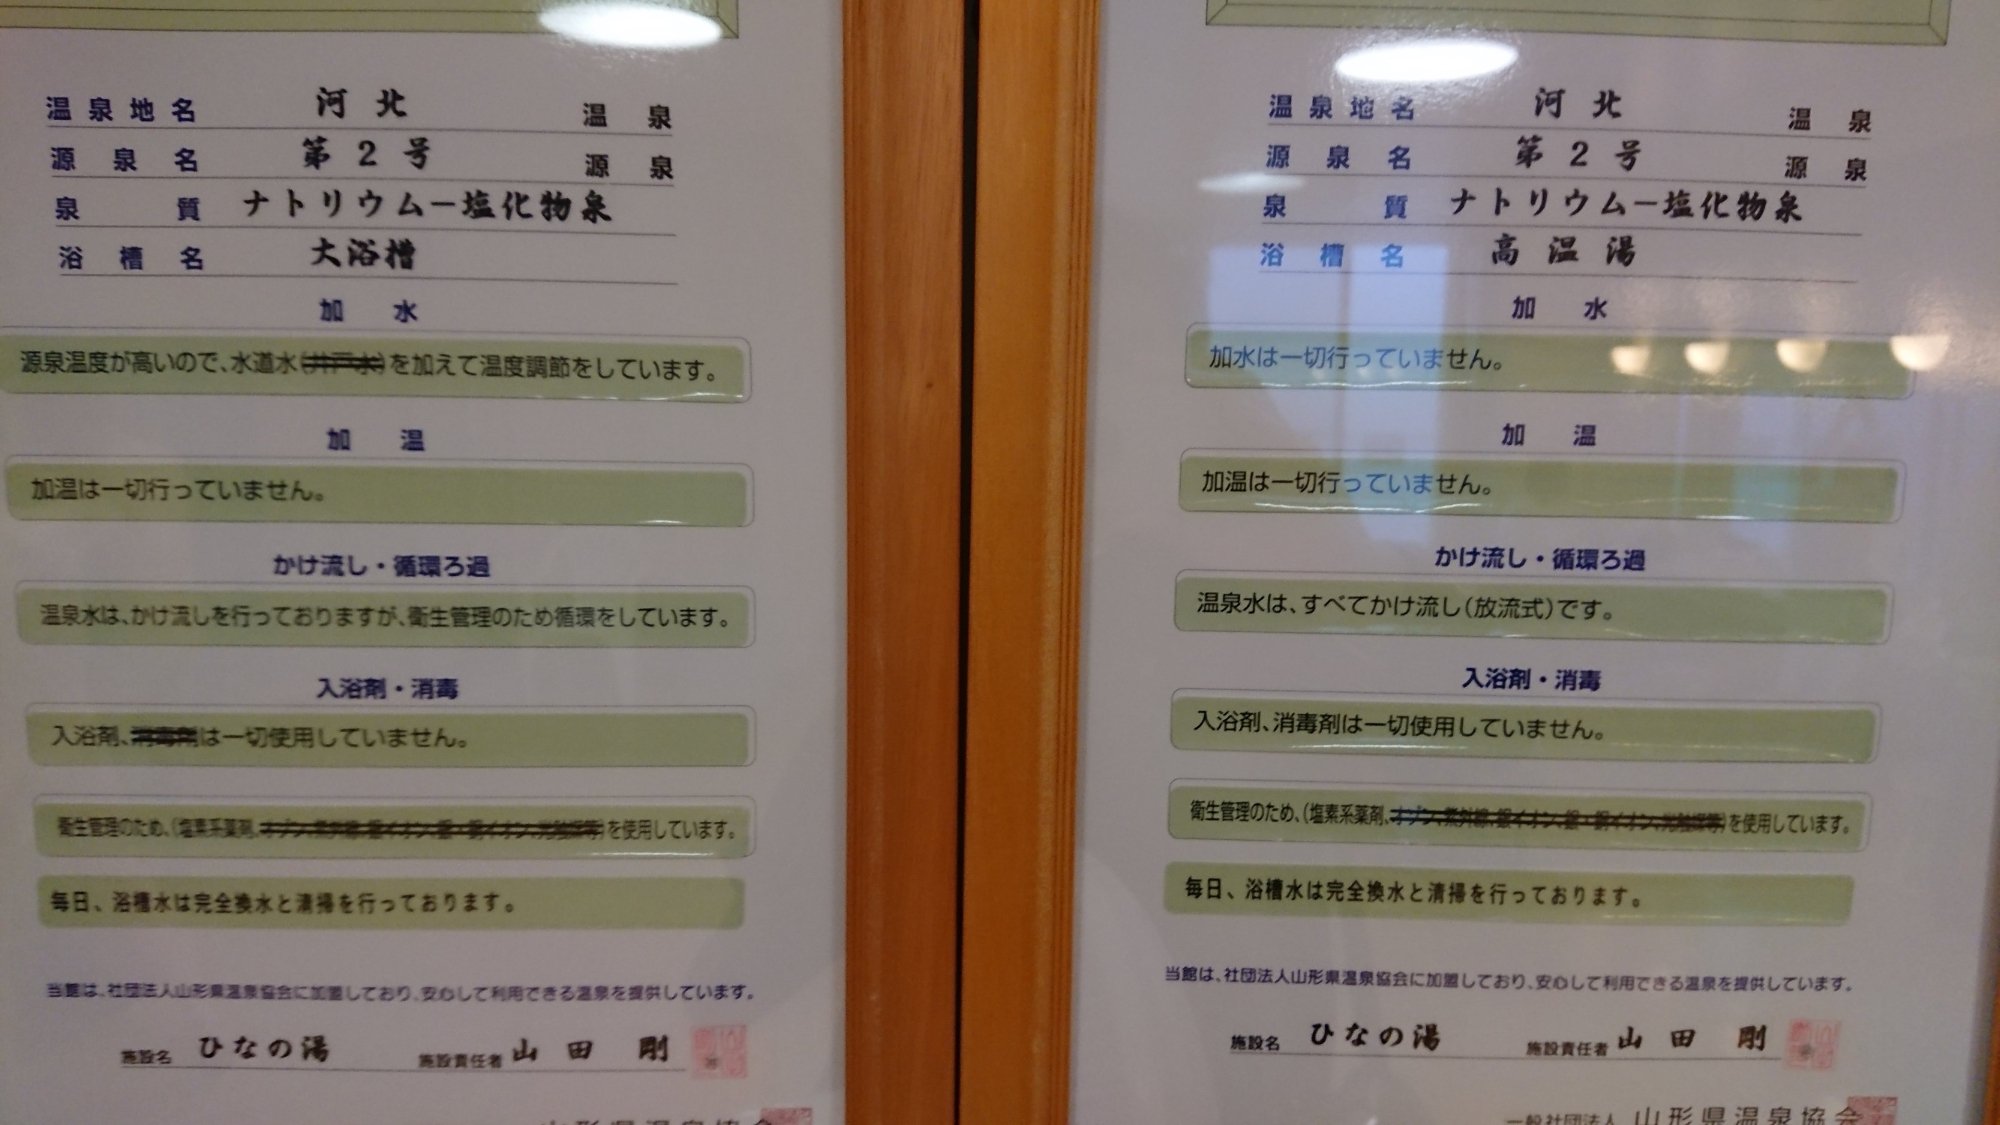 温泉地名 河北 温泉
源泉名 第2号 源泉
泉質 ナトリウム−塩化物泉
浴槽名 大浴槽
加水
源泉温度が高いので、水道水(井戸水)を加えて温度調節をしています。
加温
加温は一切行っていません。
かけ流し・循環ろ過
温泉水は、かけ流しを行っておりますが、衛生管理のため循環をしています。
入浴剤・消毒
入浴剤、消毒剤は一切使用していません。
衛生管理のため、(塩素系薬剤、オゾン、紫外線、銀イオン、銀・銅イオン、光触媒等)を使用しています。
毎日、浴槽水は完全換水と清掃を行っております。
当館は、社団法人山形県温泉協会に加盟しており、安心して利用できる温泉を提供しています。
施設名 ひなの湯 施設責任者 山田 剛
山形県温泉協会
温泉地名 河北 温泉
源泉名 第2号 源泉
泉質 ナトリウム−塩化物泉
浴槽名 高温湯
加水
加水は一切行っていません。
加温
加温は一切行っていません。
かけ流し・循環ろ過
温泉水は、すべてかけ流し(放流式)です。
入浴剤・消毒
入浴剤、消毒剤は一切使用していません。
衛生管理のため、(塩素系薬剤、オゾン、紫外線、銀イオン、銀・銅イオン、光触媒等)を使用しています。
毎日、浴槽水は完全換水と清掃を行っております。
当館は、社団法人山形県温泉協会に加盟しており、安心して利用できる温泉を提供しています。
施設名 ひなの湯 施設責任者 山田 剛
一般社団法人 山形県温泉協会